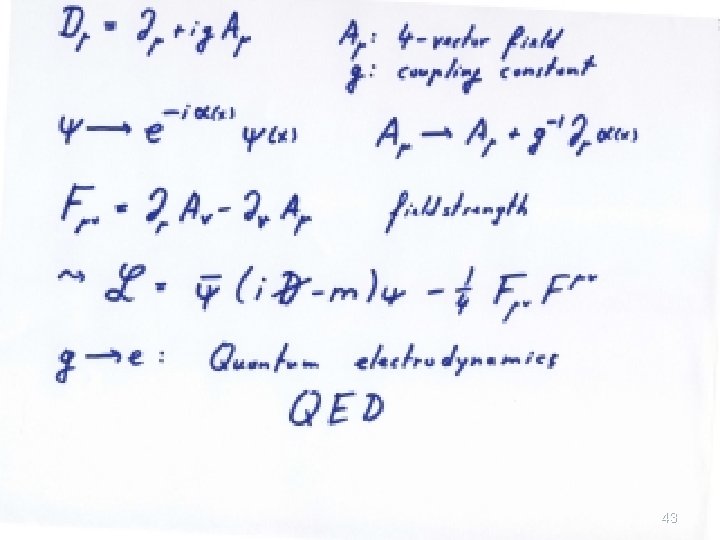 D_μ = ∂_μ + i g A_μ    A_μ: 4-vector field
g: coupling constant
ψ → e^{-iα(x)} ψ(x)    A_μ → A_μ + g^{-1} ∂_μ α(x)
F_{μν} = ∂_μ A_ν - ∂_ν A_μ    fieldstrength
⇝ ℒ = ψ̄ (i D̸ - m) ψ - 1/4 F_{μν} F^{μν}
g → e : Quantum electrodynamics
QED
43